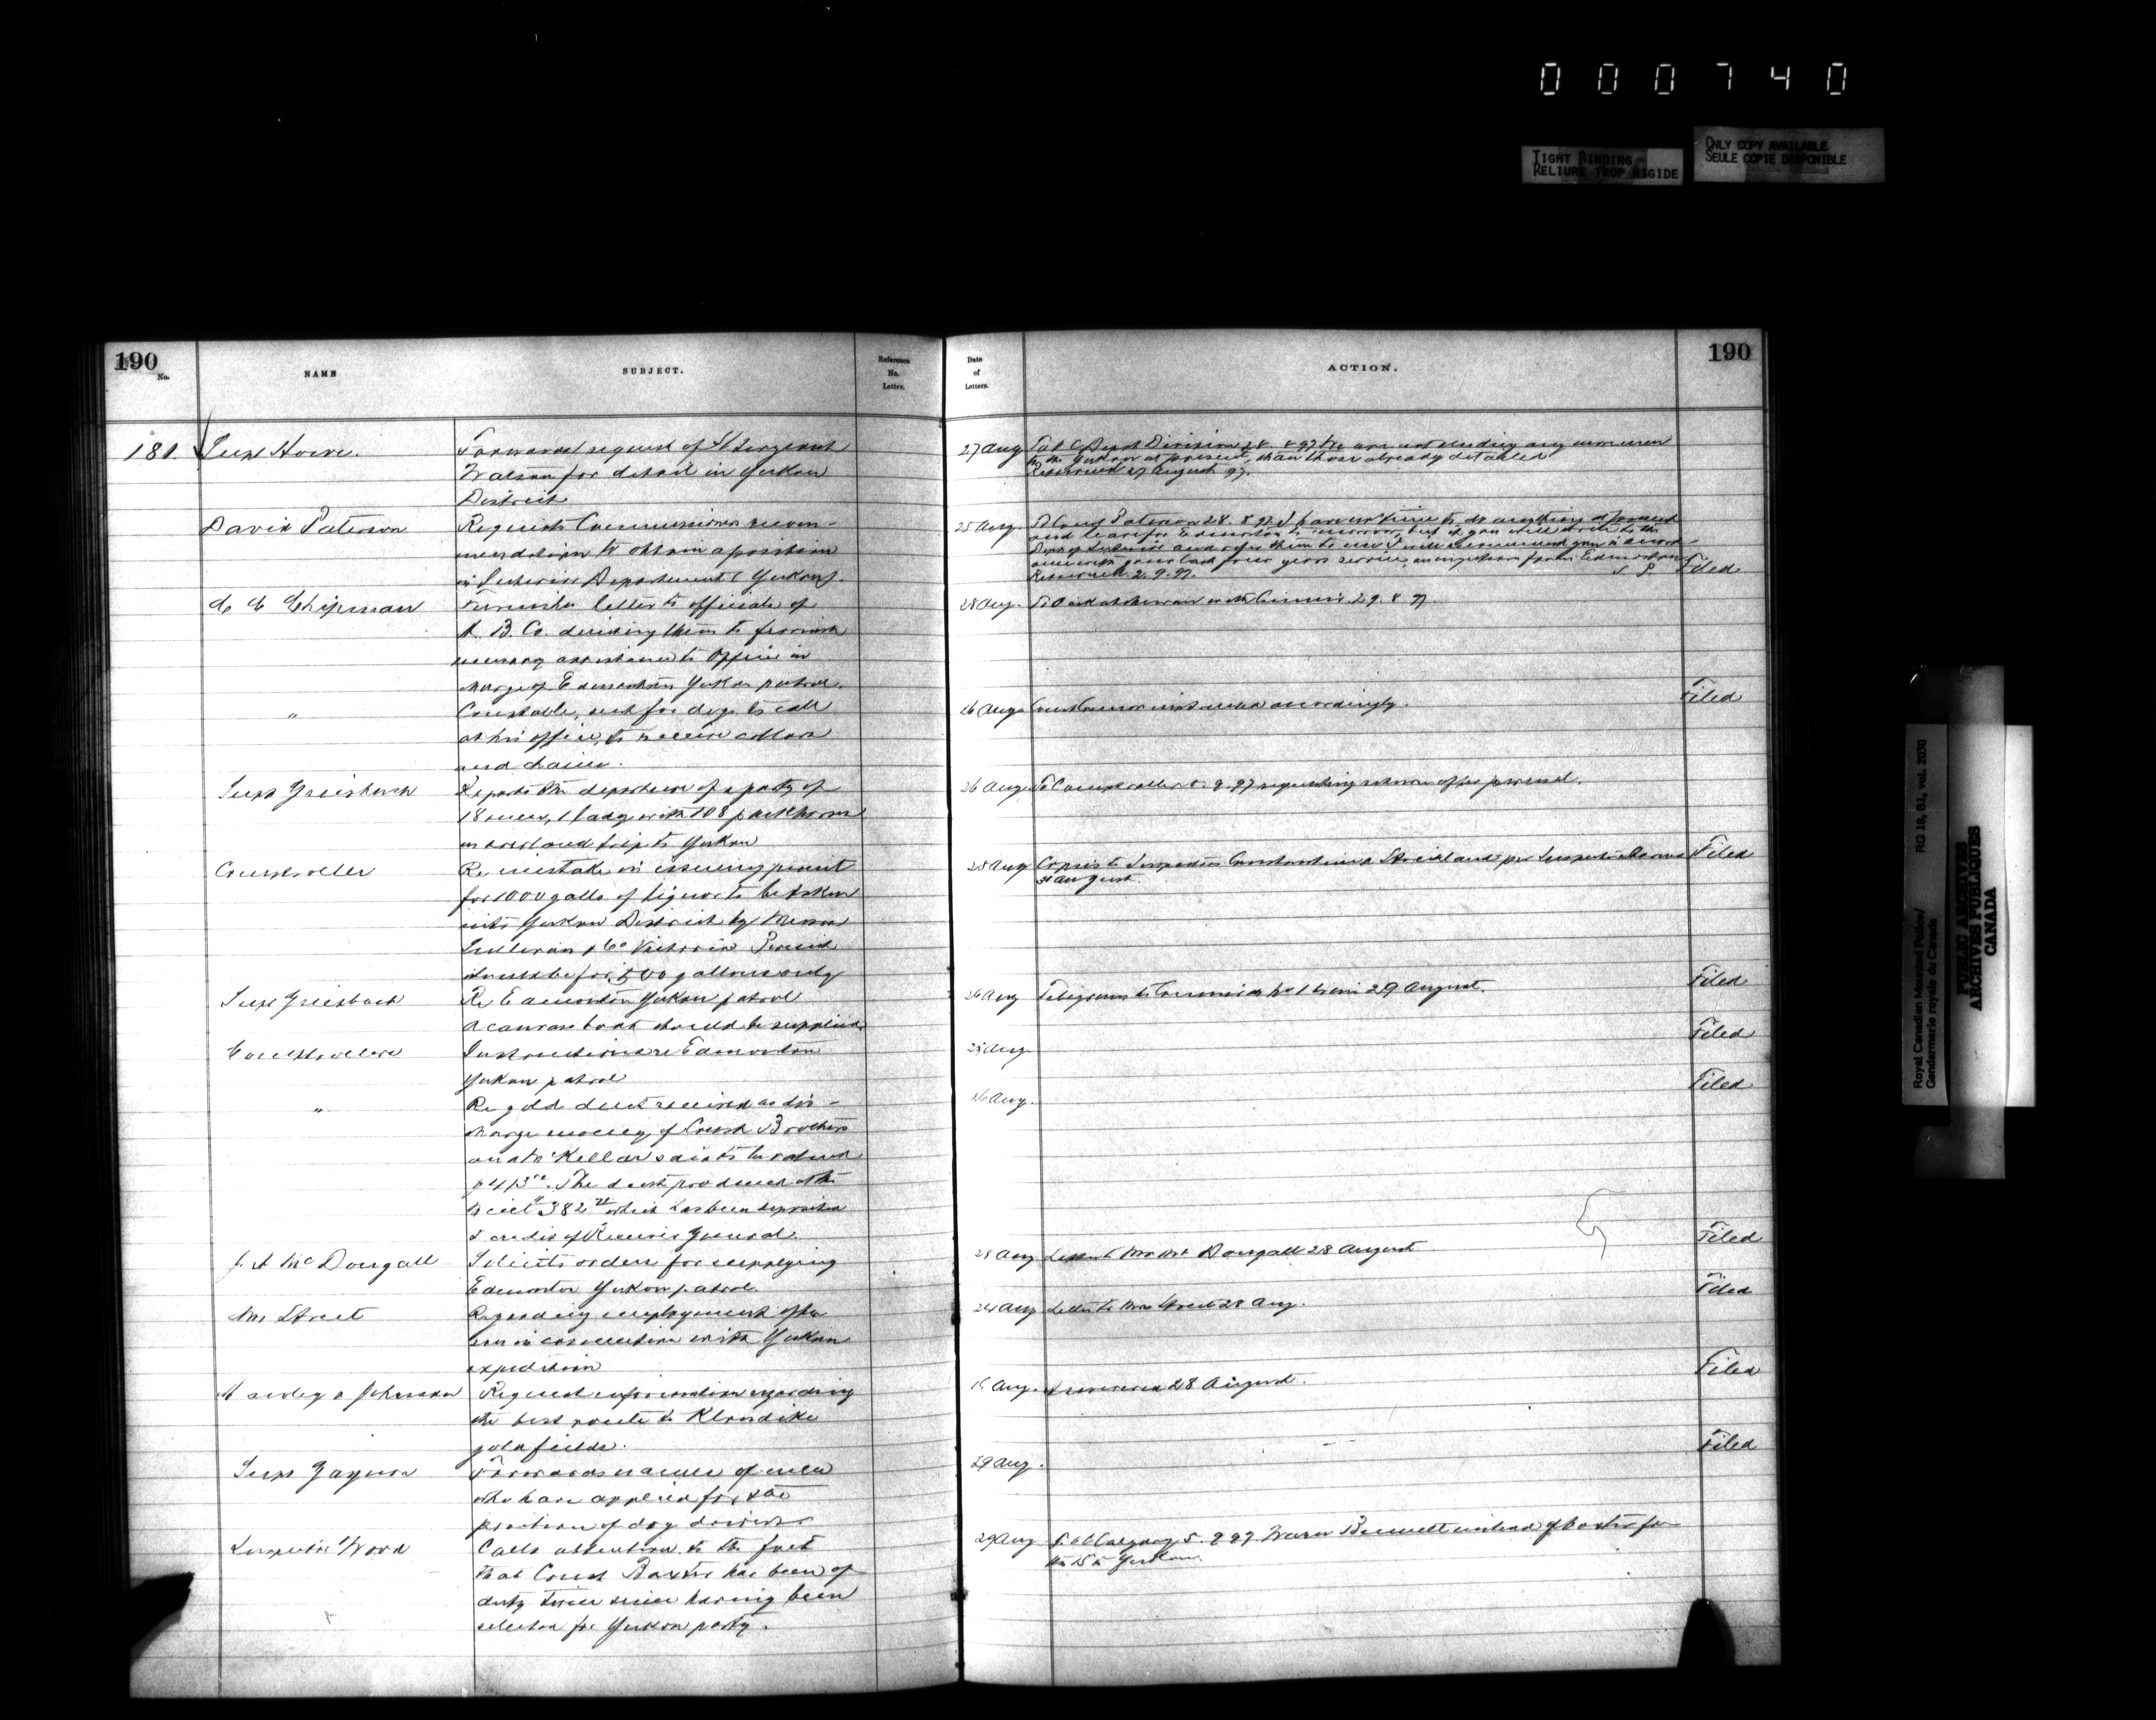 000740
TIGHT BINDING
RELIURE TROP RIGIDE
ONLY COPY AVAILABLE
SEULE COPIE DISPONIBLE
190
No.
NAME
SUBJECT.
Reference
No.
Letter.
Date
of
Letters.
ACTION.
190
181.
Supt Howe.
Forwards request of St Sergeant
Watson for detail in Yukon
District
27 Aug
Division 28. 8 97 We are not sending any more men
to the Yukon at present, than those already detailed
Returned 27 August 97.
David Paterson
Requests Commissioners recom-
mendation to obtain a position
in Interior Department (Yukon).
25 Aug.
Paterson 28. 8 97. I have no time to do anything
and leave for Edmonton tomorrow, but if you will write to the
Dept of Interior and refer them to me I will recommend you
Returned. 2. 9. 97.
Filed
C C Chipman
Furnishes letter to officials of
H. B. Co. desiring them to furnish
necessary assistance to Officer in
charge of Edmonton Yukon patrol.
28 Aug.
29. 8 97
Filed
"
Constable, sent for dogs to call
at his office, to receive collars
and chains.
26 Aug
accordingly.
Supt Griesbach
Reports the departure of a party of
18 men, 1 lady with 108 packhorses
on overland trip to Yukon
26 Aug
To Comptroller 5. 9. 97 requesting return after perusal.
Comptroller
Re mistake in issuing permit
for 1000 galls of liquor to be taken
into Yukon District by Messrs
Sullivan & Co Victoria Permit
should be for 500 gallons only
28 Aug
Copies to Inspectors Constantine & Strickland per Inspector
August.
Filed
Supt Griesbach
Re Edmonton Yukon patrol
A canvas boat should be supplied.
26 Aug
Telegram to 29 August.
Filed
Comptroller
Instructions re Edmonton
Yukon patrol
25 Aug.
Filed
"
Re gold dust received as dis-
charge money of Const Brothers
and McKellar said to be valued
The dust produced
382 which has been deposited
to credit of Receiver General.
26 Aug.
Filed
J. A McDougall
Solicits orders for supplying
Edmonton Yukon patrol.
28 Aug
Letter to Mr McDougall 28 August
Filed
Mr Street
Regarding employment of
son in connection with Yukon
expedition
24 Aug
Letter to Mr Street 28 Aug.
Filed
Hawley & Johnston
Request information regarding
the best route to Klondike
gold fields.
Aug.
Answered 28 August.
Filed
Supt Gagnon
Forwards names of men
who have applied for the
position of dog drivers
29 Aug.
Filed
Inspector Wood
Calls attention to the fact
that Const Baxter has been off
duty twice since having been
selected for Yukon party.
29 Aug
Calgary 5. 9 97. Warn Bennett instead of Baxter for
the Yukon.
Royal Canadian Mounted Police/
Gendarmerie royale du Canada
RG 18, B1, vol. 2030
PUBLIC ARCHIVES
ARCHIVES PUBLIQUES
CANADA